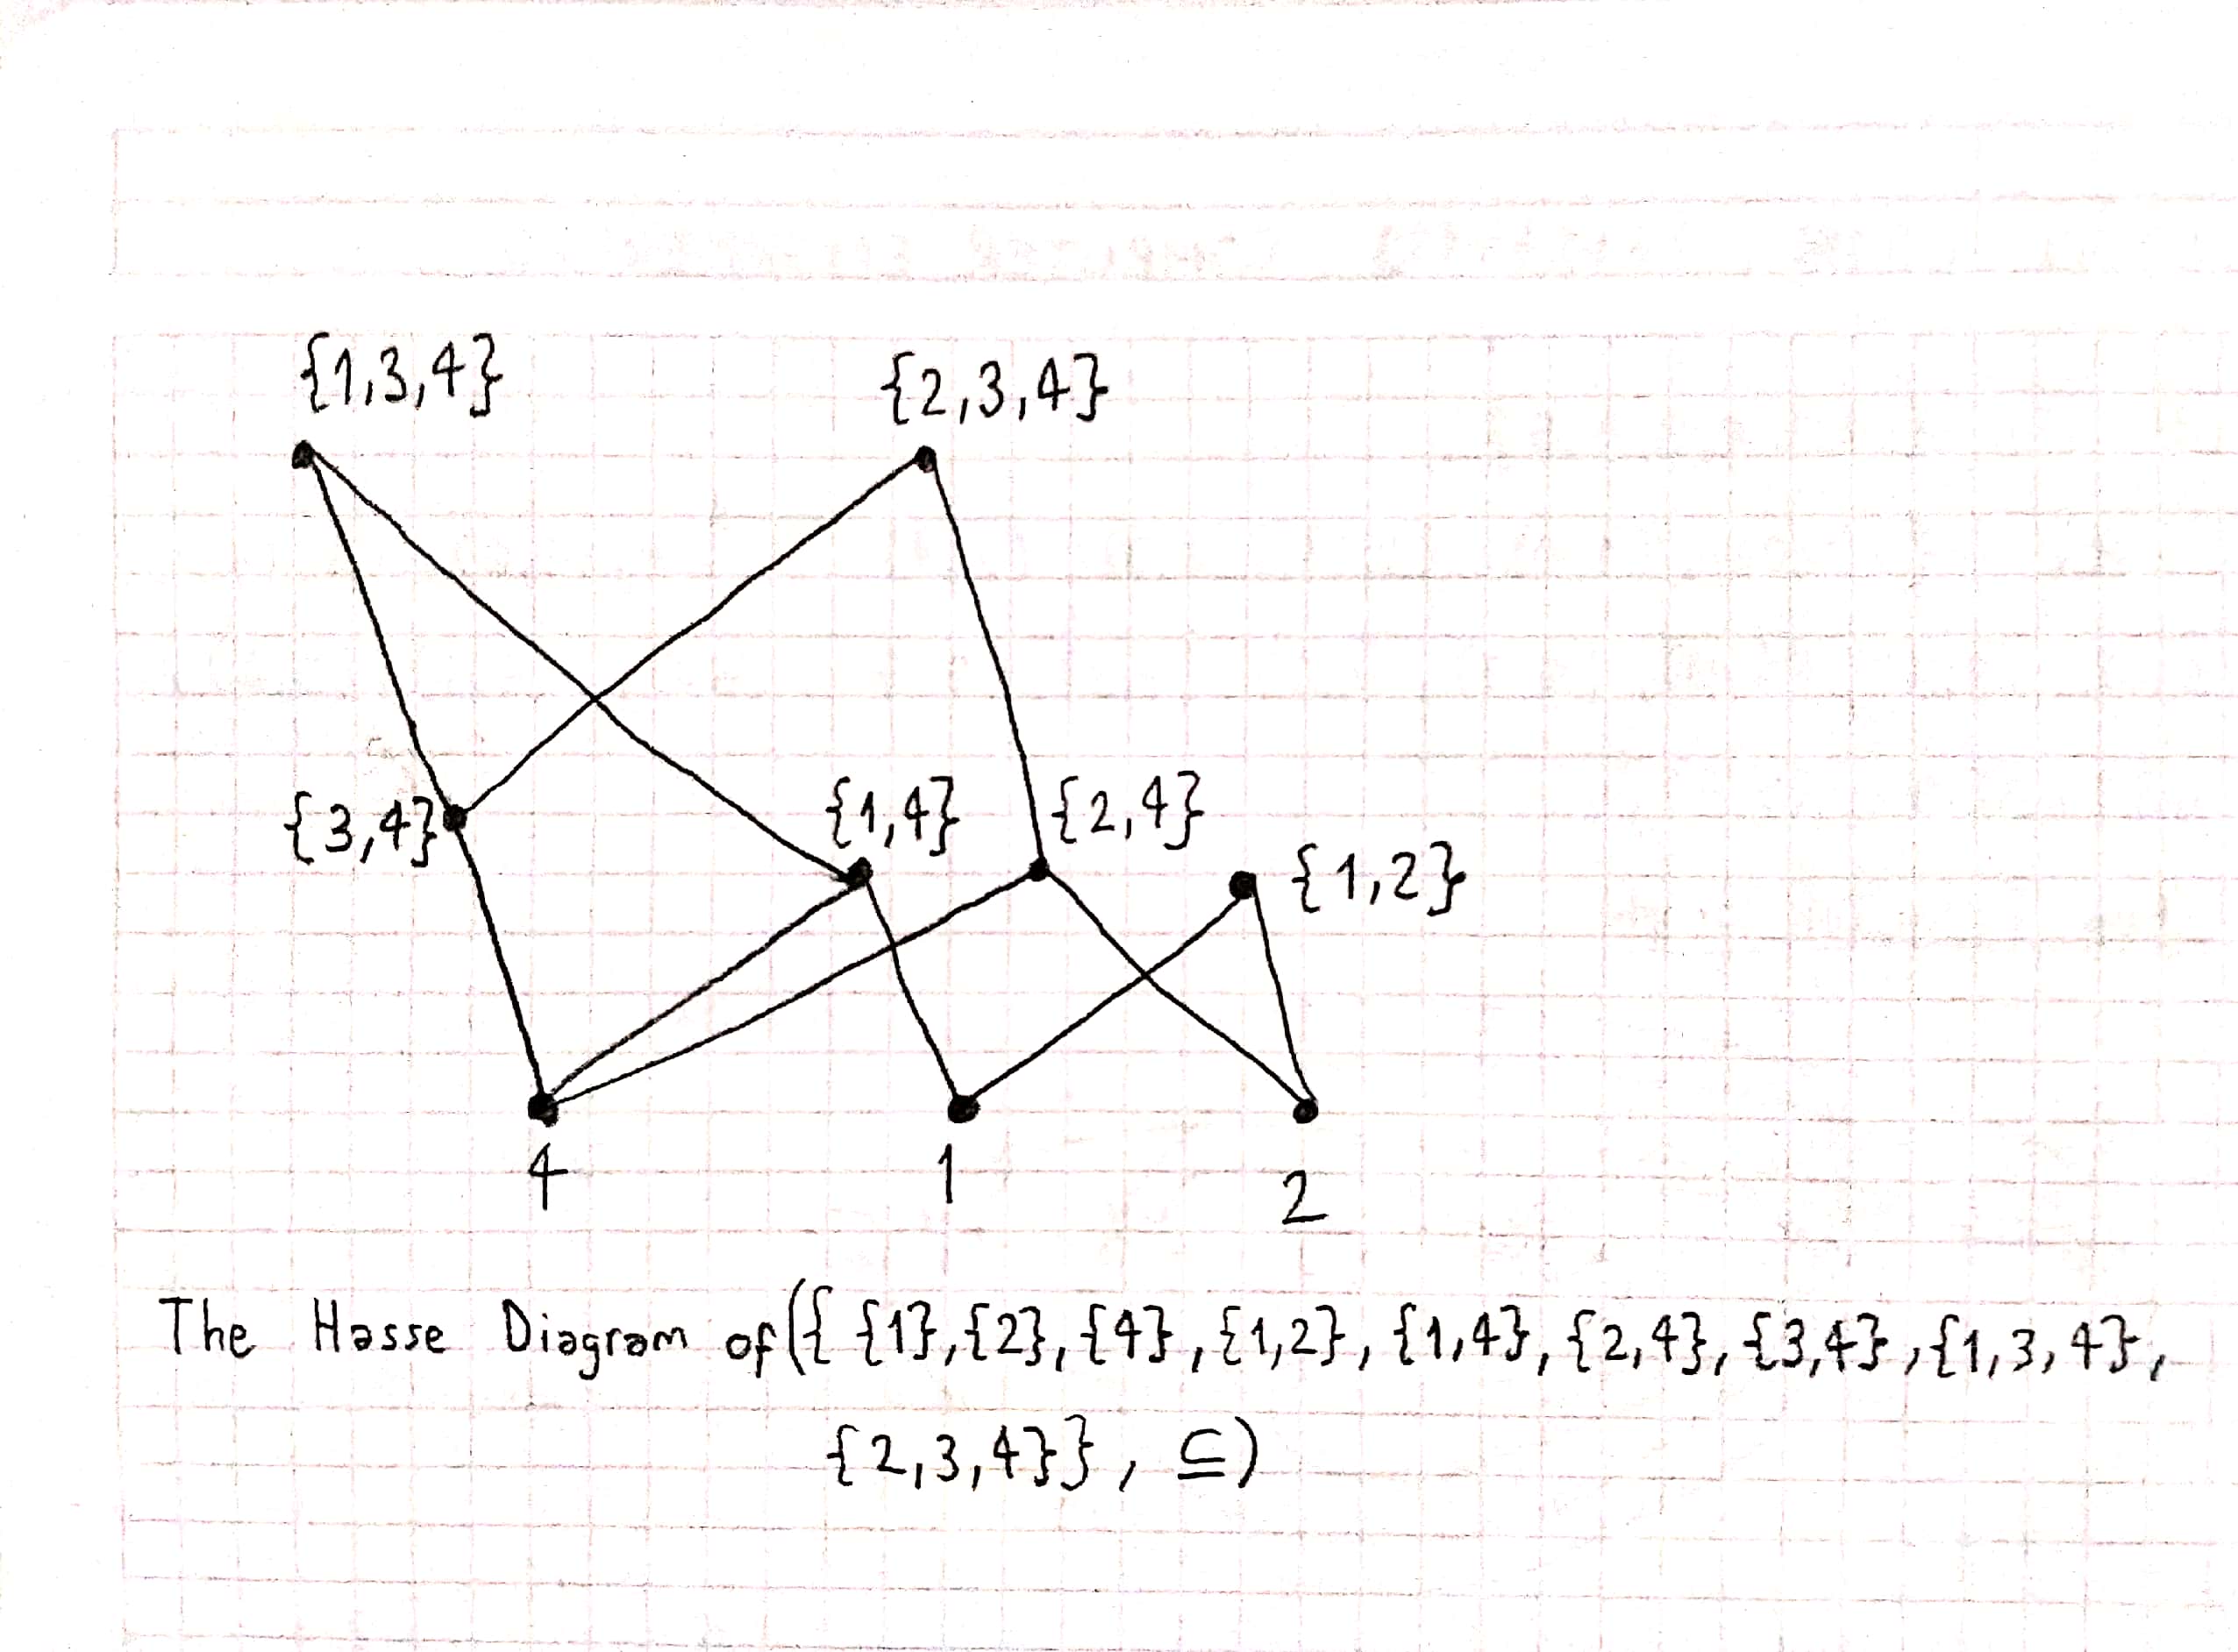 {1,3,4} {2,3,4}
{3,4} {1,4} {2,4} {1,2}
4 1 2
The Hasse Diagram of ({ {1}, {2}, {4}, {1,2}, {1,4}, {2,4}, {3,4}, {1,3,4},
{2,3,4}}, ⊆)